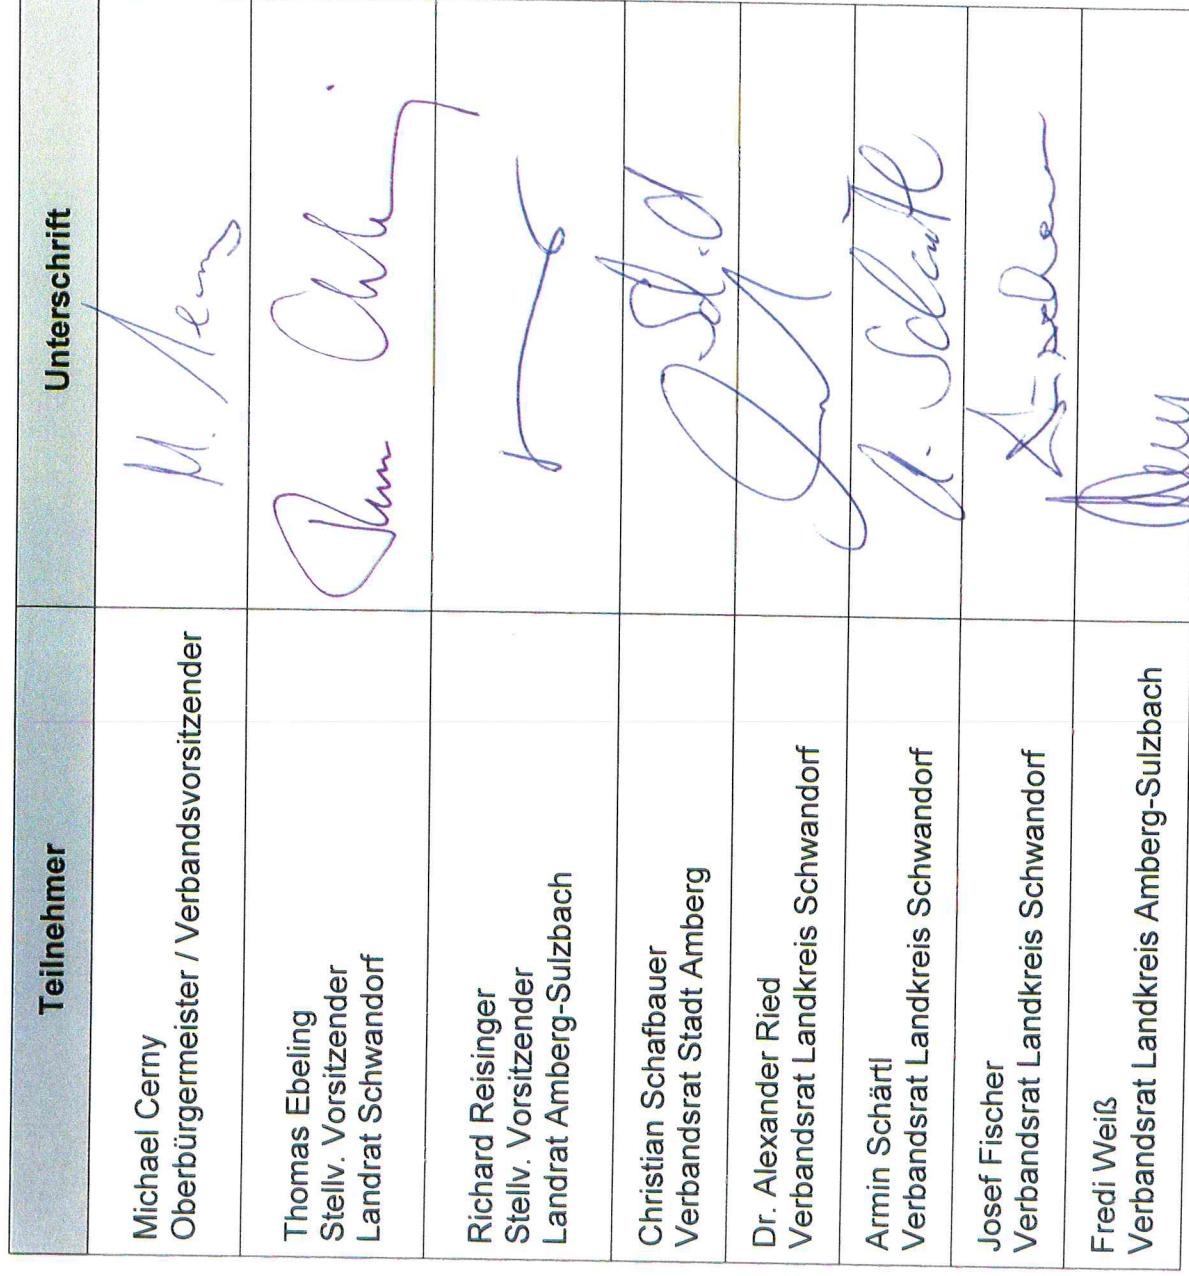 Teilnehmer
Unterschrift
Michael Cerny
Oberbürgermeister / Verbandsvorsitzender
M. Cerny
Thomas Ebeling
Stellv. Vorsitzender
Landrat Schwandorf
Richard Reisinger
Stellv. Vorsitzender
Landrat Amberg-Sulzbach
Christian Schafbauer
Verbandsrat Stadt Amberg
Dr. Alexander Ried
Verbandsrat Landkreis Schwandorf
Armin Schärtl
Verbandsrat Landkreis Schwandorf
A. Schärtl
Josef Fischer
Verbandsrat Landkreis Schwandorf
Fredi Weiß
Verbandsrat Landkreis Amberg-Sulzbach